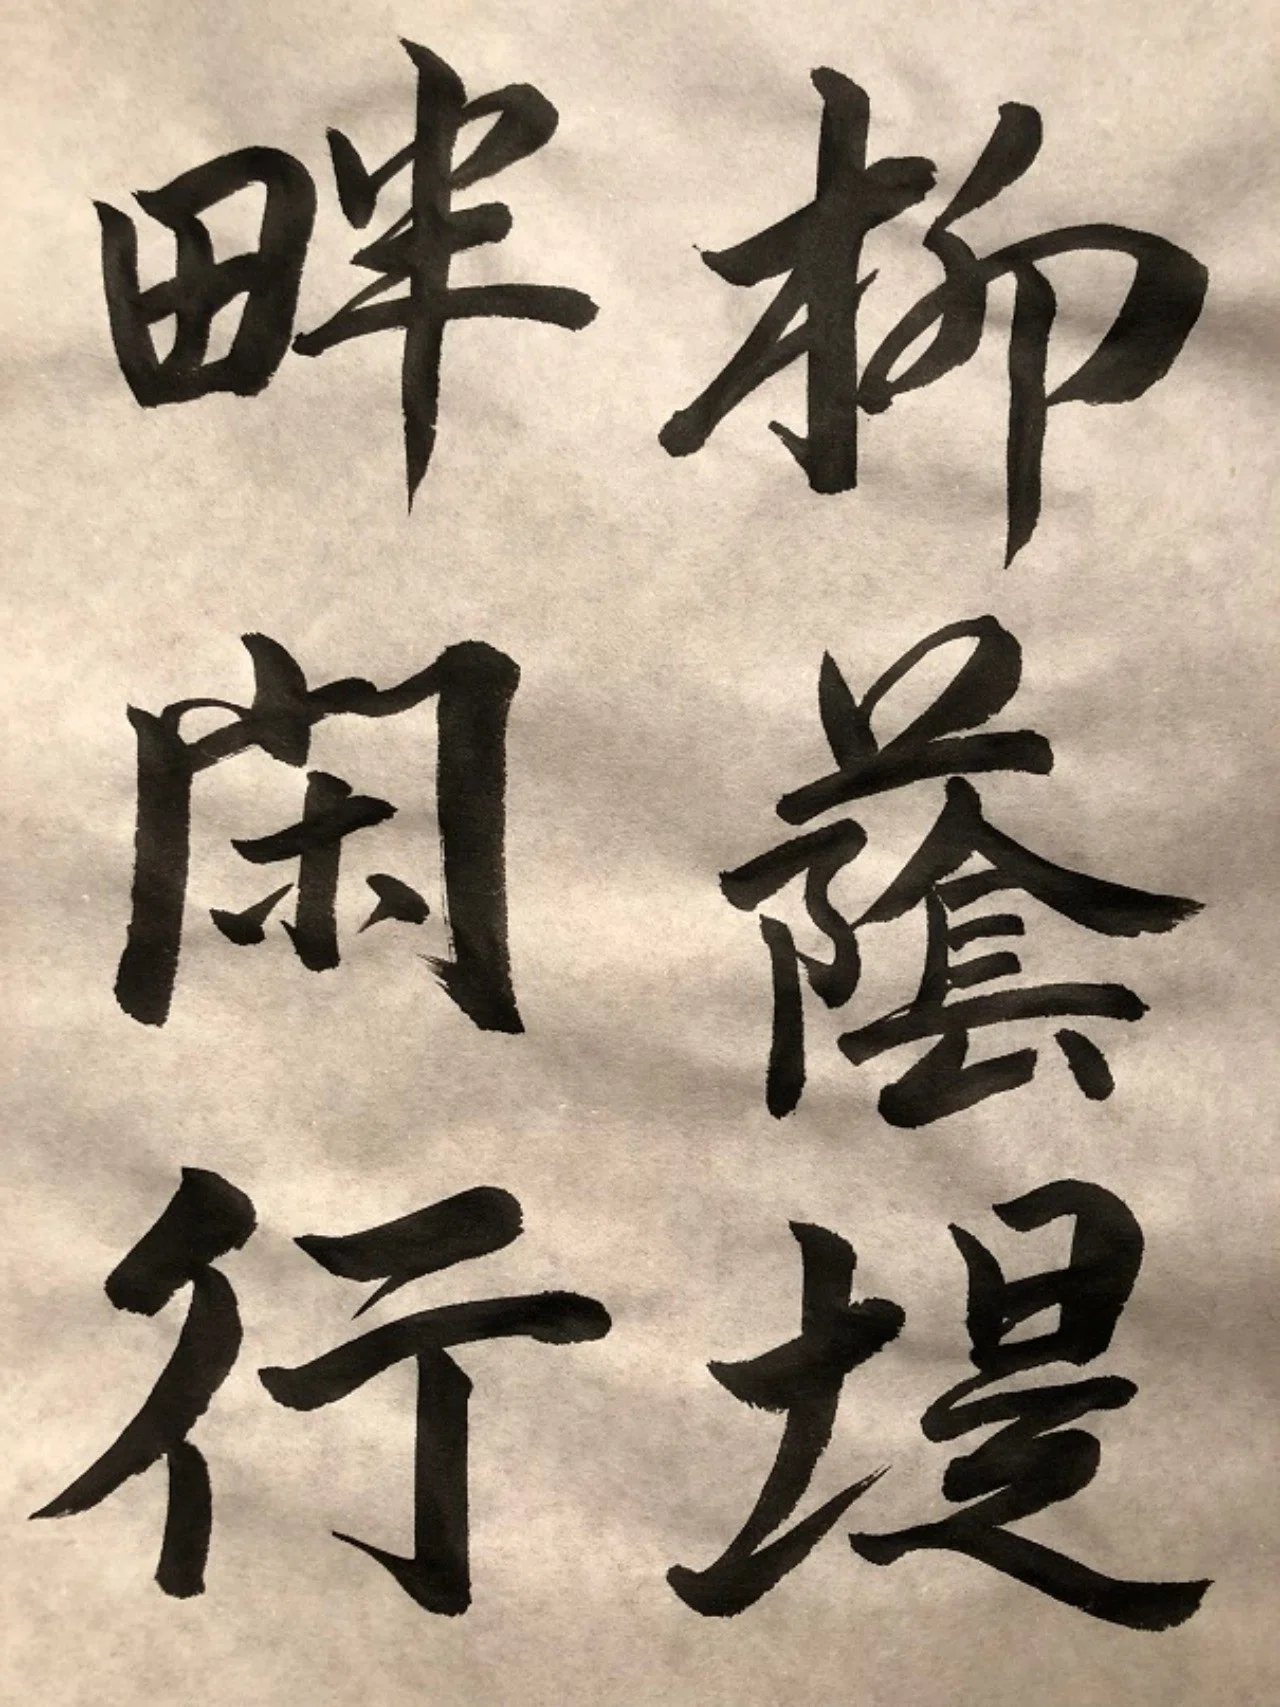 柳蔭堤
畔閑行